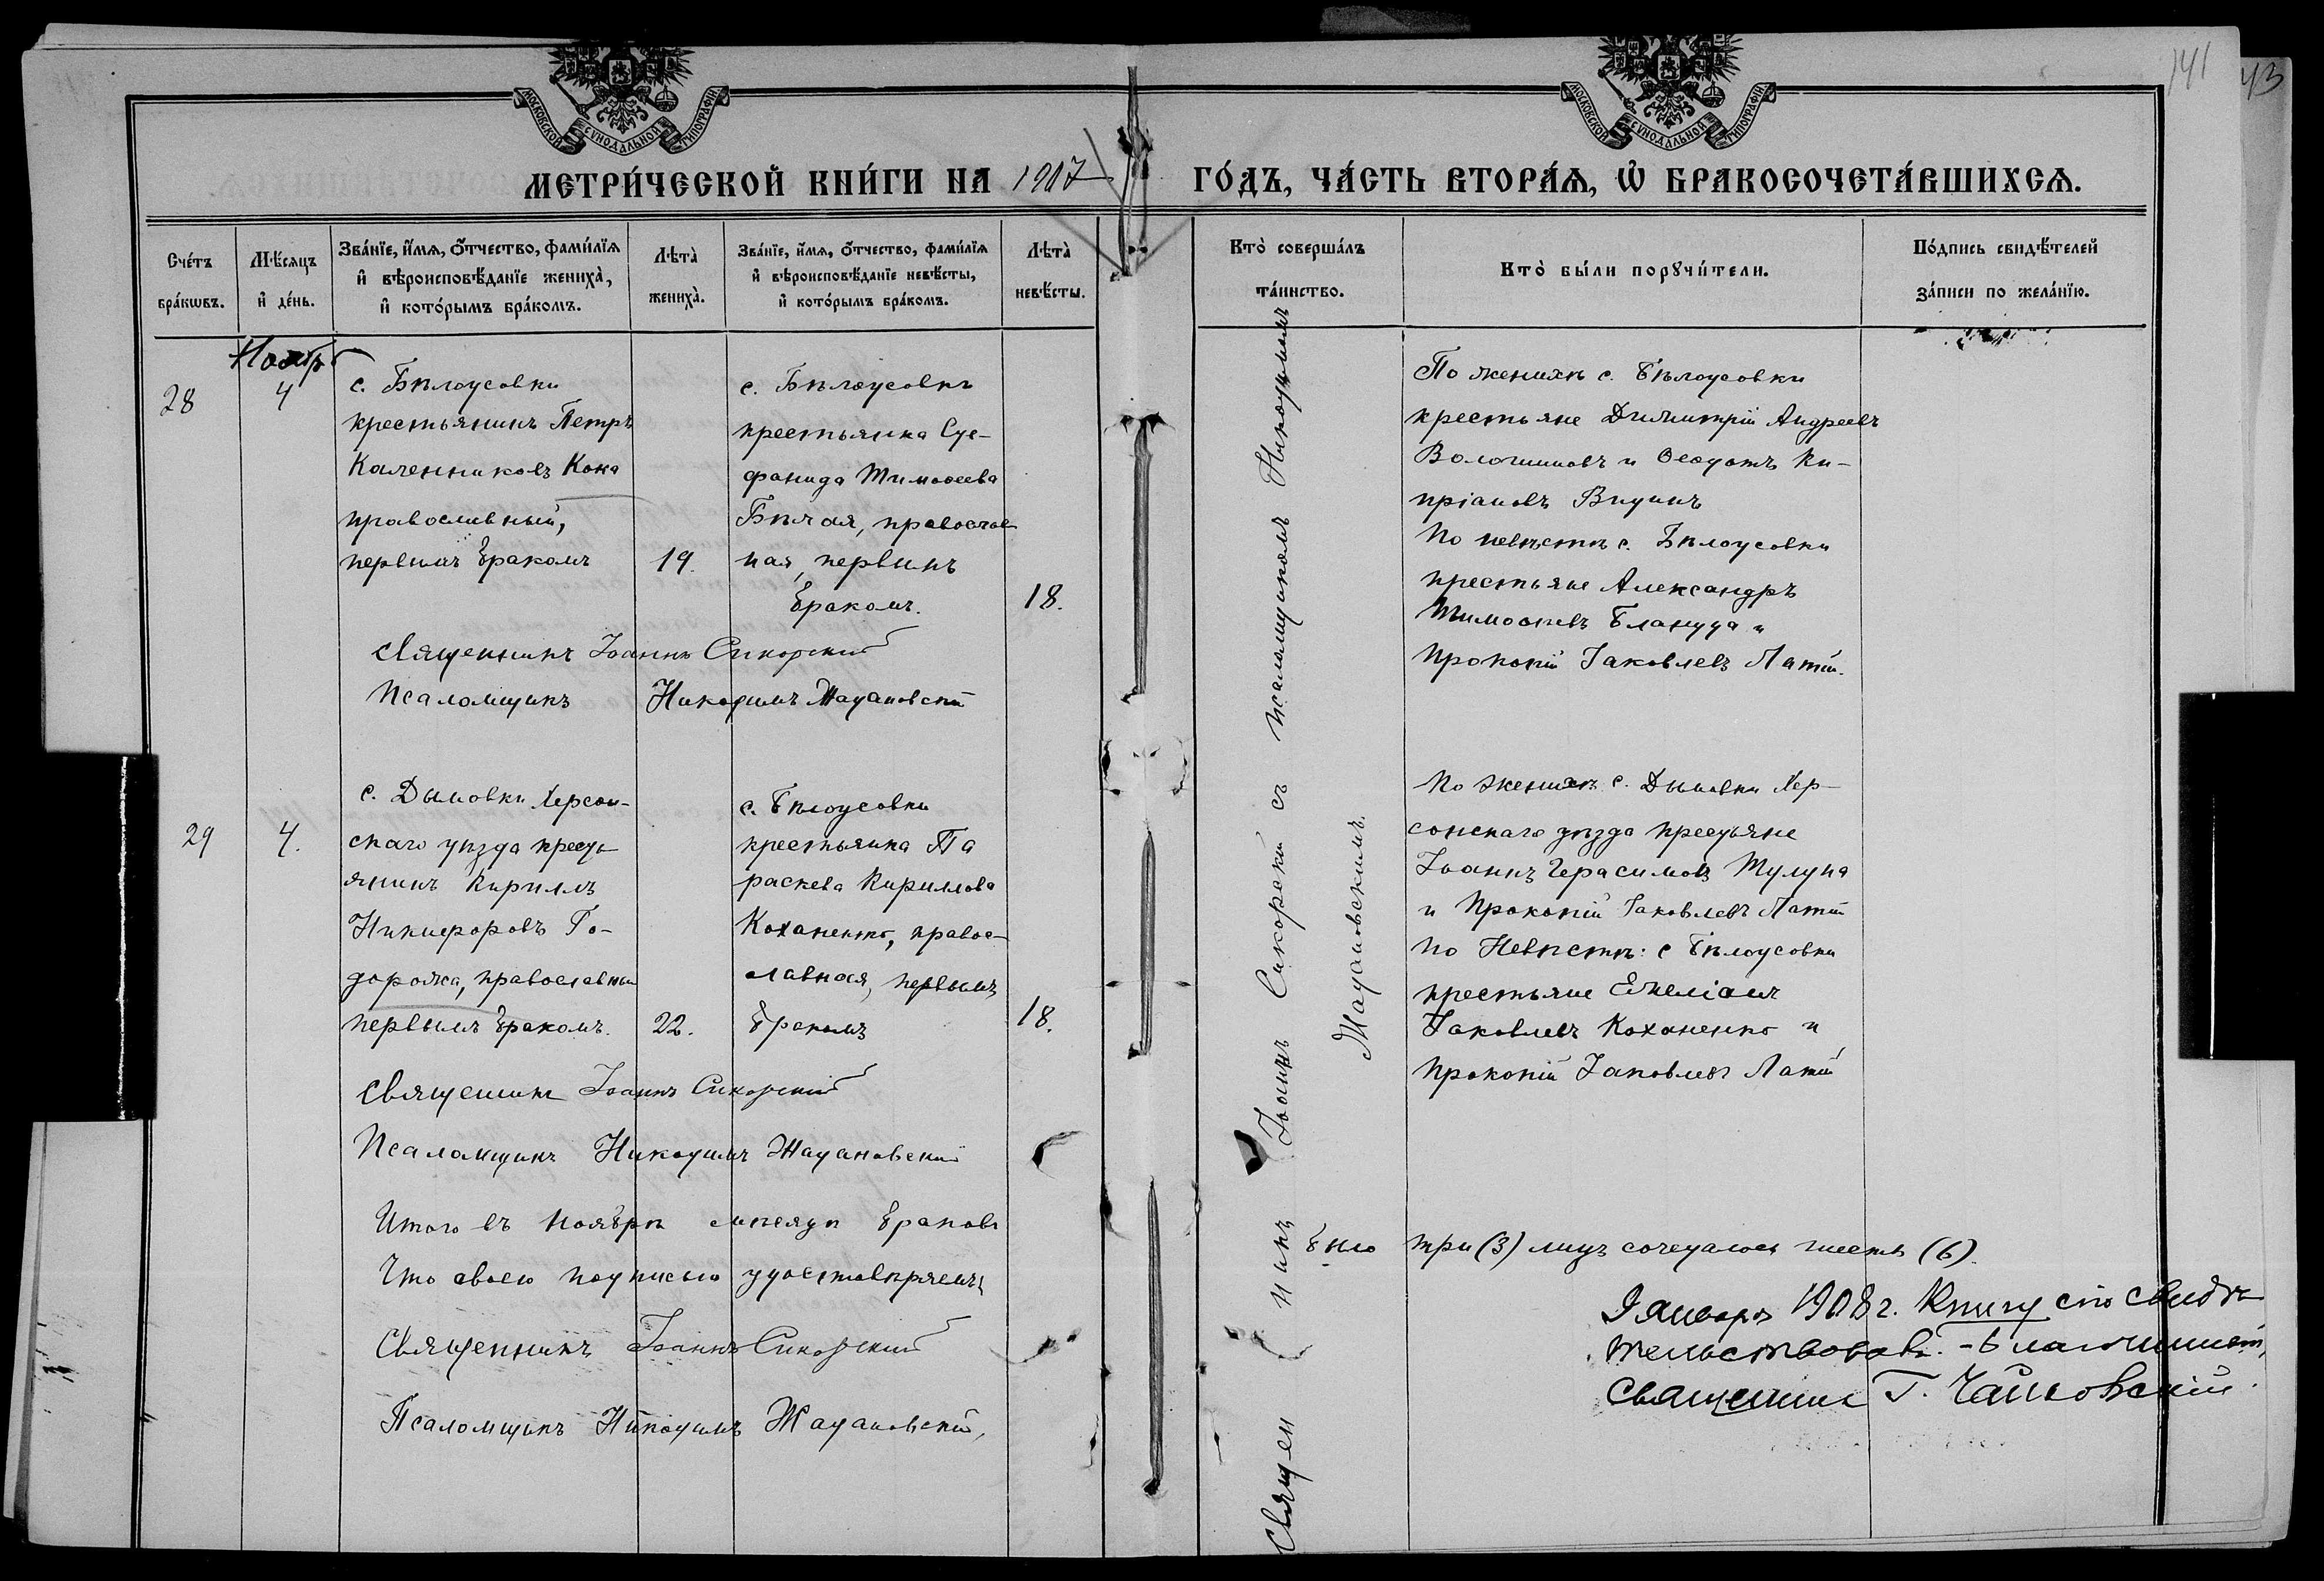 141
43
МОСКОВСКОЙ СѴНОДАЛЬНОЙ ТИПОГРАФІИ
МОСКОВСКОЙ СѴНОДАЛЬНОЙ ТИПОГРАФІИ
МЕТРИ́ЧЕСКОЙ КНИ́ГИ НА 1907
ГО́ДЪ, ЧА́СТЬ ВТОРА́Ѧ, Ѽ БРАКОСОЧЕТА́ВШИХСѦ.
Сче́тъ бра́кѡвъ.
Мѣ́сяцъ и҆ де́нь.
Зва́нїе, и҆́мѧ, ѻ҆́тчество, фами́лїѧ
и҆ вѣроисповѣ́данїе жениха̀,
и҆ кото́рымъ бра́комъ.
Лѣта̀ жениха̀.
Зва́нїе, и҆́мѧ, ѻ҆́тчество, фами́лїѧ
и҆ вѣроисповѣ́данїе невѣ́сты,
и҆ кото́рымъ бра́комъ.
Лѣта̀ невѣ́сты.
Кто̀ соверша́лъ
та́инство.
Кто̀ бы́ли порꙋчи́тели.
По́дпись свидѣ́телей
за́писи по жела́нїю.
Ноябрь
28
4
с. Бѣлоусовки
крестьянинъ Петръ
Каленниковъ Кона
православный,
первымъ бракомъ
19.
с. Бѣлоусовки
крестьянка Сте-
фанида Тимоѳеева
Бѣлая, православ
ная, первымъ
бракомъ.
18.
Священникъ Іоаннъ Сикорский
Псаломщикъ Никодимъ Жадановскій
По женихѣ с. Бѣлоусовки
крестьяне Димитрій Андреевъ
Волошиновъ и Ѳеодотъ Ки-
пріановъ
По невѣстѣ с. Бѣлоусовки
крестьяне Александръ
Тимоѳеевъ
Прокопій Іаковлевъ Латій.
29
4.
с. Дымовки Херсон-
скаго уѣзда кресть
янинъ Кирилъ
Никифоровъ Го-
дорожа, православный
первымъ бракомъ.
22.
с. Бѣлоусовки
крестьянка Па
раскева Кириллова
Коханенко, правос-
лавная, первымъ
бракомъ
18.
Священникъ Іоаннъ Сикорскій
Псаломщикъ Никодимъ Жадановский
По женихѣ с. Дымовки Хер-
сонскаго уѣзда крестьяне
Іоаннъ Герасимовъ Тулупа
и Прокопій Іаковлевъ Латій
По Невѣстѣ: с Бѣлоусовки
крестьяне Емеліанъ
Іаковлевъ Коханенко и
Прокопій Іаковлевъ Латій
Священникъ Іоаннъ Сикорскій съ псаломщикомъ Никодимомъ
Жадановскимъ.
Итого въ Ноябрѣ мѣсяцѣ браковъ было три (3) лицъ сочеталось шесть (6).
Что своею подписью удостовѣряемъ
Священникъ Іоаннъ Сикорский
Псаломщикъ Никодимъ Жадановскій,
Января 1908 г. Книгу сію свидѣ
тельствовалъ. - Благочинный,
Священникъ Г. Чайковскій.